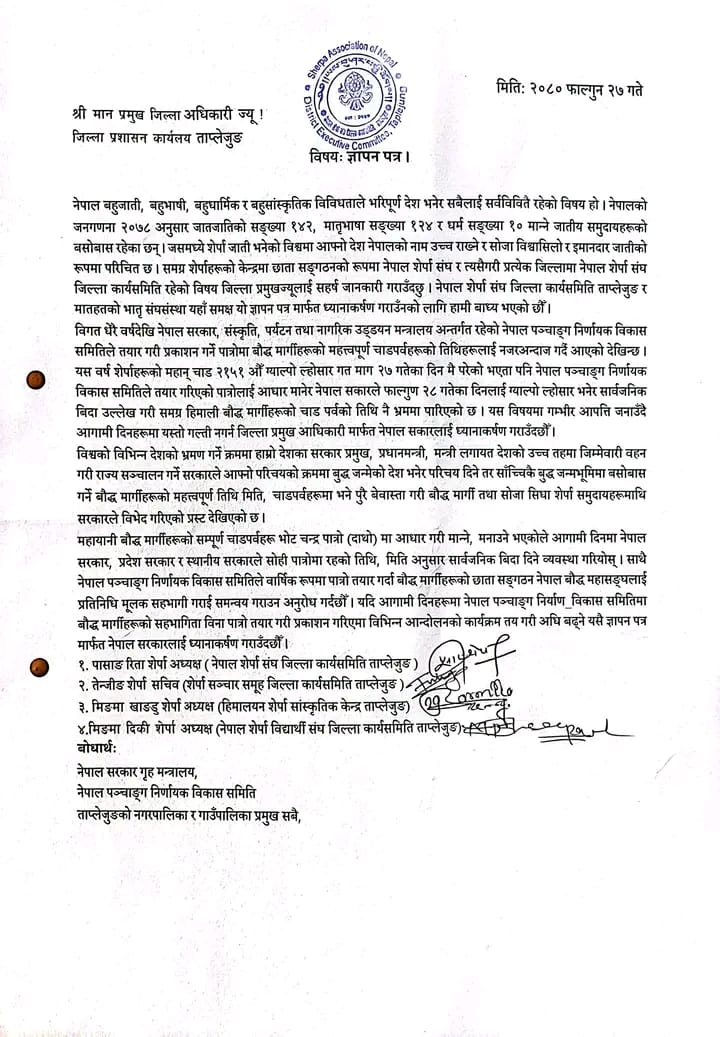 Sherpa Association of Nepal
District Executive Committee, Taplejung
मिति: २०८० फाल्गुन २७ गते
श्री मान प्रमुख जिल्ला अधिकारी ज्यू !
जिल्ला प्रशासन कार्यलय ताप्लेजुङ
विषयः ज्ञापन पत्र।
नेपाल बहुजाती, बहुभाषी, बहुधार्मिक र बहुसांस्कृतिक विविधताले भरिपूर्ण देश भनेर सबैलाई सर्वविवितै रहेको विषय हो । नेपालको
जनगणना २०७८ अनुसार जातजातिको सङ्ख्या १४२, मातृभाषा सङ्ख्या १२४ र धर्म सङ्ख्या १० मान्ने जातीय समुदायहरूको
बसोबास रहेका छन् । जसमध्ये शेर्पा जाती भनेको विश्वमा आफ्नो देश नेपालको नाम उच्च राख्ने र सोजा विश्वासिलो र इमानदार जातीको
रूपमा परिचित छ । समग्र शेर्पाहरूको केन्द्रमा छाता सङ्गठनको रूपमा नेपाल शेर्पा संघ र त्यसैगरी प्रत्येक जिल्लामा नेपाल शेर्पा संघ
जिल्ला कार्यसमिति रहेको विषय जिल्ला प्रमुखज्यूलाई सहर्ष जानकारी गराउँदछु । नेपाल शेर्पा संघ जिल्ला कार्यसमिति ताप्लेजुङ र
मातहतको भातृ संघसंस्था यहाँ समक्ष यो ज्ञापन पत्र मार्फत ध्यानाकर्षण गराउँनको लागि हामी बाध्य भएको छौँ।
विगत धेरै वर्षदेखि नेपाल सरकार, संस्कृति, पर्यटन तथा नागरिक उड्डयन मन्त्रालय अन्तर्गत रहेको नेपाल पञ्चाङ्ग निर्णायक विकास
समितिले तयार गरी प्रकाशन गर्ने पात्रोमा बौद्ध मार्गीहरूको महत्त्वपूर्ण चाडपर्वहरूको तिथिहरूलाई नजरअन्दाज गर्दै आएको देखिन्छ ।
यस वर्ष शेर्पाहरूको महान् चाड २१५१ औँ ग्याल्पो ल्होसार गत माग २७ गतेका दिन मै परेको भएता पनि नेपाल पञ्चाङ्ग निर्णायक
विकास समितिले तयार गरिएको पात्रोलाई आधार मानेर नेपाल सकारले फाल्गुण २८ गतेका दिनलाई ग्याल्पो ल्होसार भनेर सार्वजनिक
बिदा उल्लेख गरी समग्र हिमाली बौद्ध मार्गीहरूको चाड पर्वको तिथि नै भ्रममा पारिएको छ । यस विषयमा गम्भीर आपत्ति जनाउँदै
आगामी दिनहरूमा यस्तो गल्ती नगर्न जिल्ला प्रमुख अधिकारी मार्फत नेपाल सकारलाई ध्यानाकर्षण गराउँदछौँ।
विश्वको विभिन्न देशको भ्रमण गर्ने क्रममा हाम्रो देशका सरकार प्रमुख, प्रधानमन्त्री, मन्त्री लगायत देशको उच्च तहमा जिम्मेवारी वहन
गरी राज्य सञ्चालन गर्ने सरकारले आफ्नो परिचयको क्रममा बुद्ध जन्मेको देश भनेर परिचय दिने तर साँच्चिकै बुद्ध जन्मभूमिमा बसोबास
गर्ने बौद्ध मार्गीहरूको महत्त्वपूर्ण तिथि मिति, चाडपर्वहरूमा भने पुरै बेवास्ता गरी बौद्ध मार्गी तथा सोजा सिधा शेर्पा समुदायहरूमाथि
सरकारले विभेद गरिएको प्रस्ट देखिएको छ ।
महायानी बौद्ध मार्गीहरूको सम्पूर्ण चाडपर्वहरू भोट चन्द्र पात्रो (दाथो) मा आधार गरी मान्ने, मनाउने भएकोले आगामी दिनमा नेपाल
सरकार, प्रदेश सरकार र स्थानीय सरकारले सोही पात्रोमा रहको तिथि, मिति अनुसार सार्वजनिक बिदा दिने व्यवस्था गरियोस् । साथै
नेपाल पञ्चाङ्ग निर्णायक विकास समितिले वार्षिक रूपमा पात्रो तयार गर्दा बौद्ध मार्गीहरूको छाता सङ्गठन नेपाल बौद्ध महासङ्घलाई
प्रतिनिधि मूलक सहभागी गराई समन्वय गराउन अनुरोध गर्दछौँ । यदि आगामी दिनहरूमा नेपाल पञ्चाङ्ग निर्याण_विकास समितिमा
बौद्ध मार्गीहरूको सहभागिता विना पात्रो तयार गरी प्रकाशन गरिएमा विभिन्न आन्दोलनको कार्यक्रम तय गरी अधि बढ्ने यसै ज्ञापन पत्र
मार्फत नेपाल सरकारलाई ध्यानाकर्षण गराउँदछौँ।
१. पासाङ रिता शेर्पा अध्यक्ष ( नेपाल शेर्पा संघ जिल्ला कार्यसमिति ताप्लेजुङ )
२. तेन्जीङ शेर्पा सचिव (शेर्पा सञ्चार समूह जिल्ला कार्यसमिति ताप्लेजुङ )
३. मिङमा खाङडु शेर्पा अध्यक्ष (हिमालयन शेर्पा सांस्कृतिक केन्द्र ताप्लेजुङ)
४.मिङमा दिकी शेर्पा अध्यक्ष (नेपाल शेर्पा विद्यार्थी संघ जिल्ला कार्यसमिति ताप्लेजुङ)
बोधार्थः
नेपाल सरकार गृह मन्त्रालय,
नेपाल पञ्चाङ्ग निर्णायक विकास समिति
ताप्लेजुङको नगरपालिका र गाउँपालिका प्रमुख सबै,